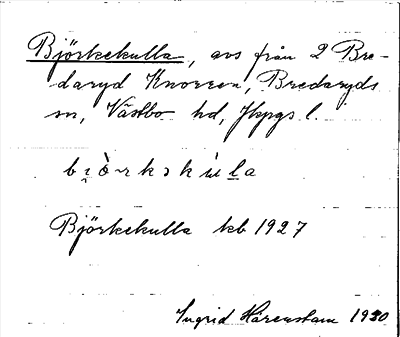 Björkekulla, avs från 2 Bre-
daryd Knorren, Bredaryds
sn, Västbo hd, Jkpgs l.
bi̯ò̱rkskùla
Björkekulla kb 1927
Ingrid Hårenstam 1930